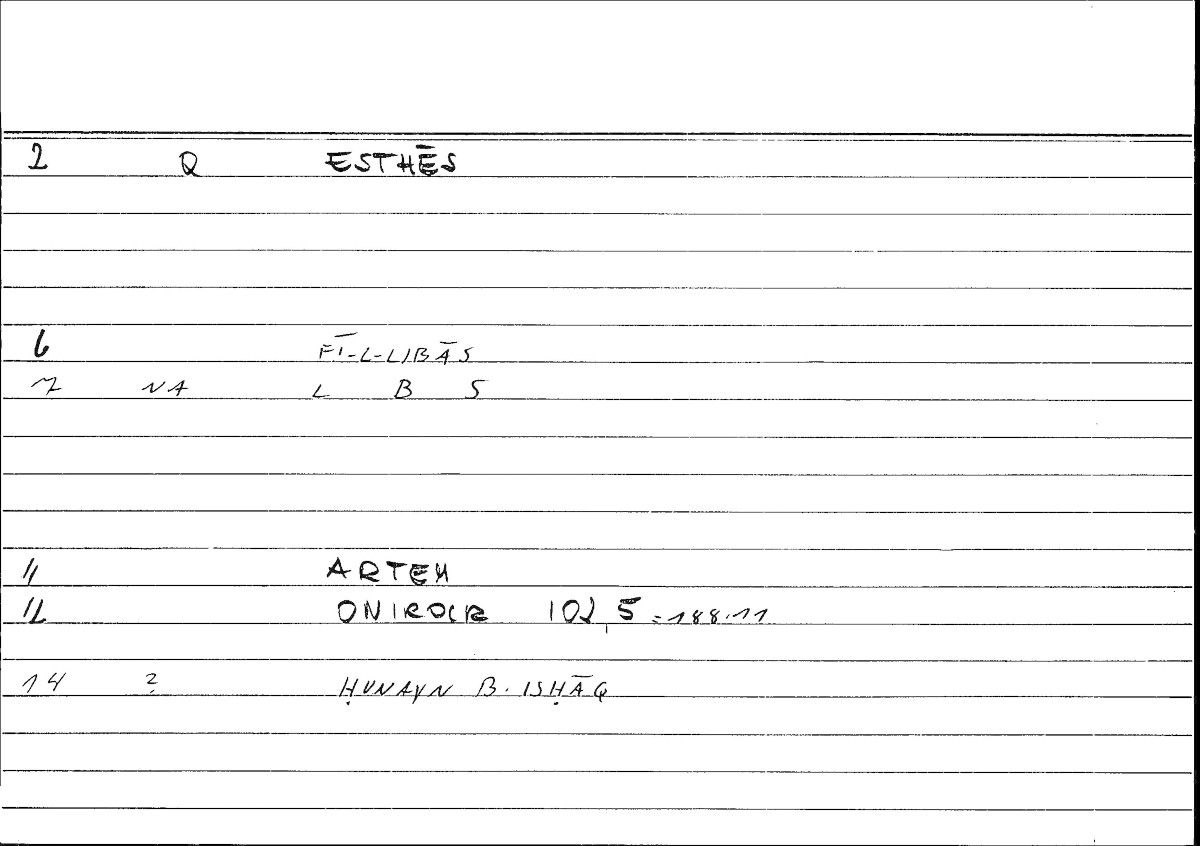 2 Q ESTHĒS
6 FĪ-L-LIBĀS
7 NA L B S
11 ARTEM
12 ONIROCR 102,5 = 188.11
14 ? ḤUNAYN B. ISḤĀQ